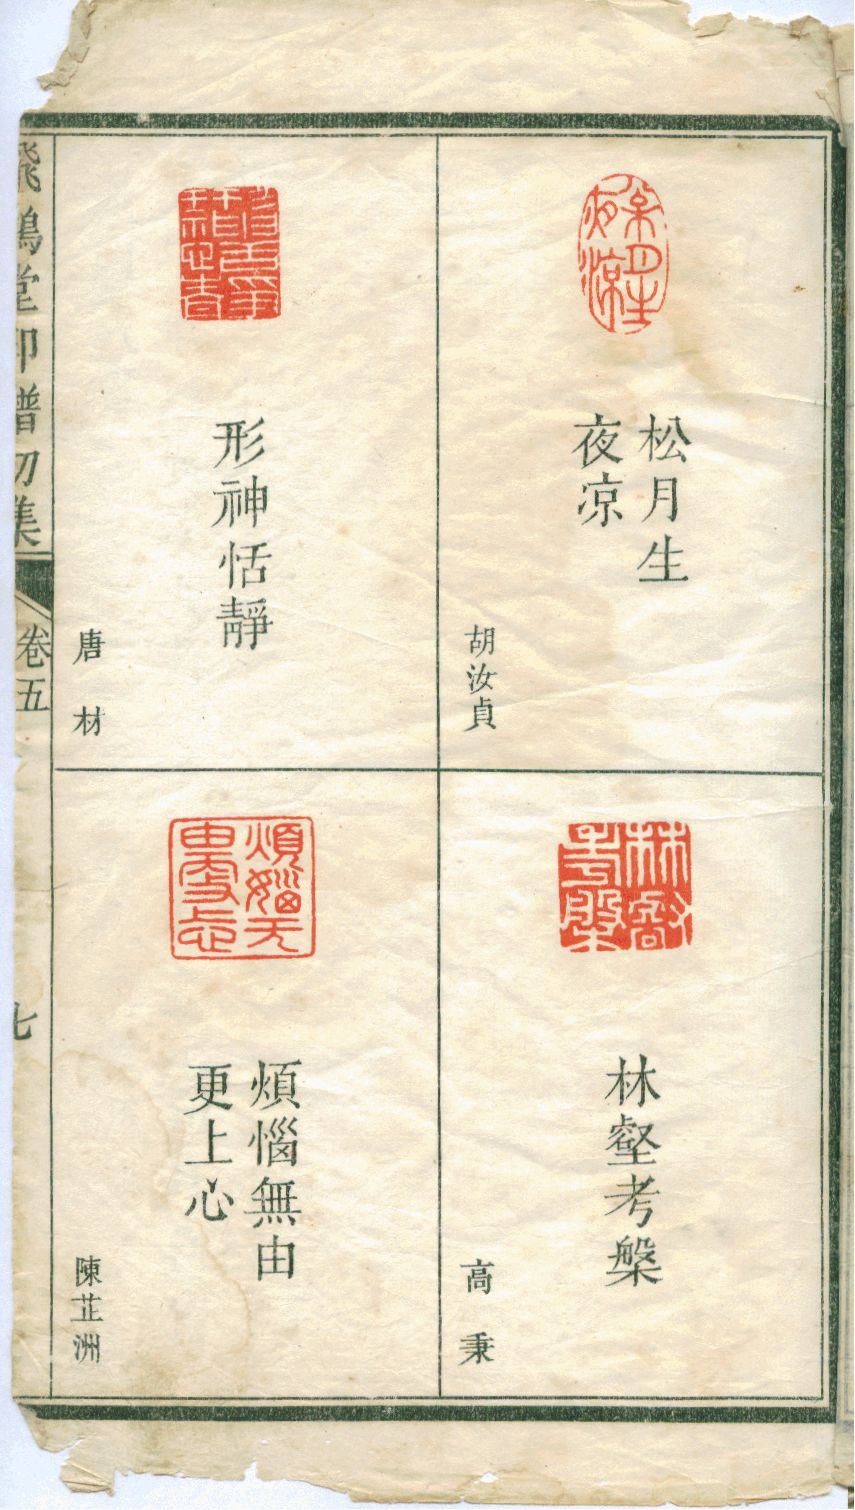 松月生
夜凉
胡汝貞
形神恬靜
唐材
林壑考槃
高秉
煩惱無由
更上心
陳芷洲
飛鴻堂印譜初集
卷五
七